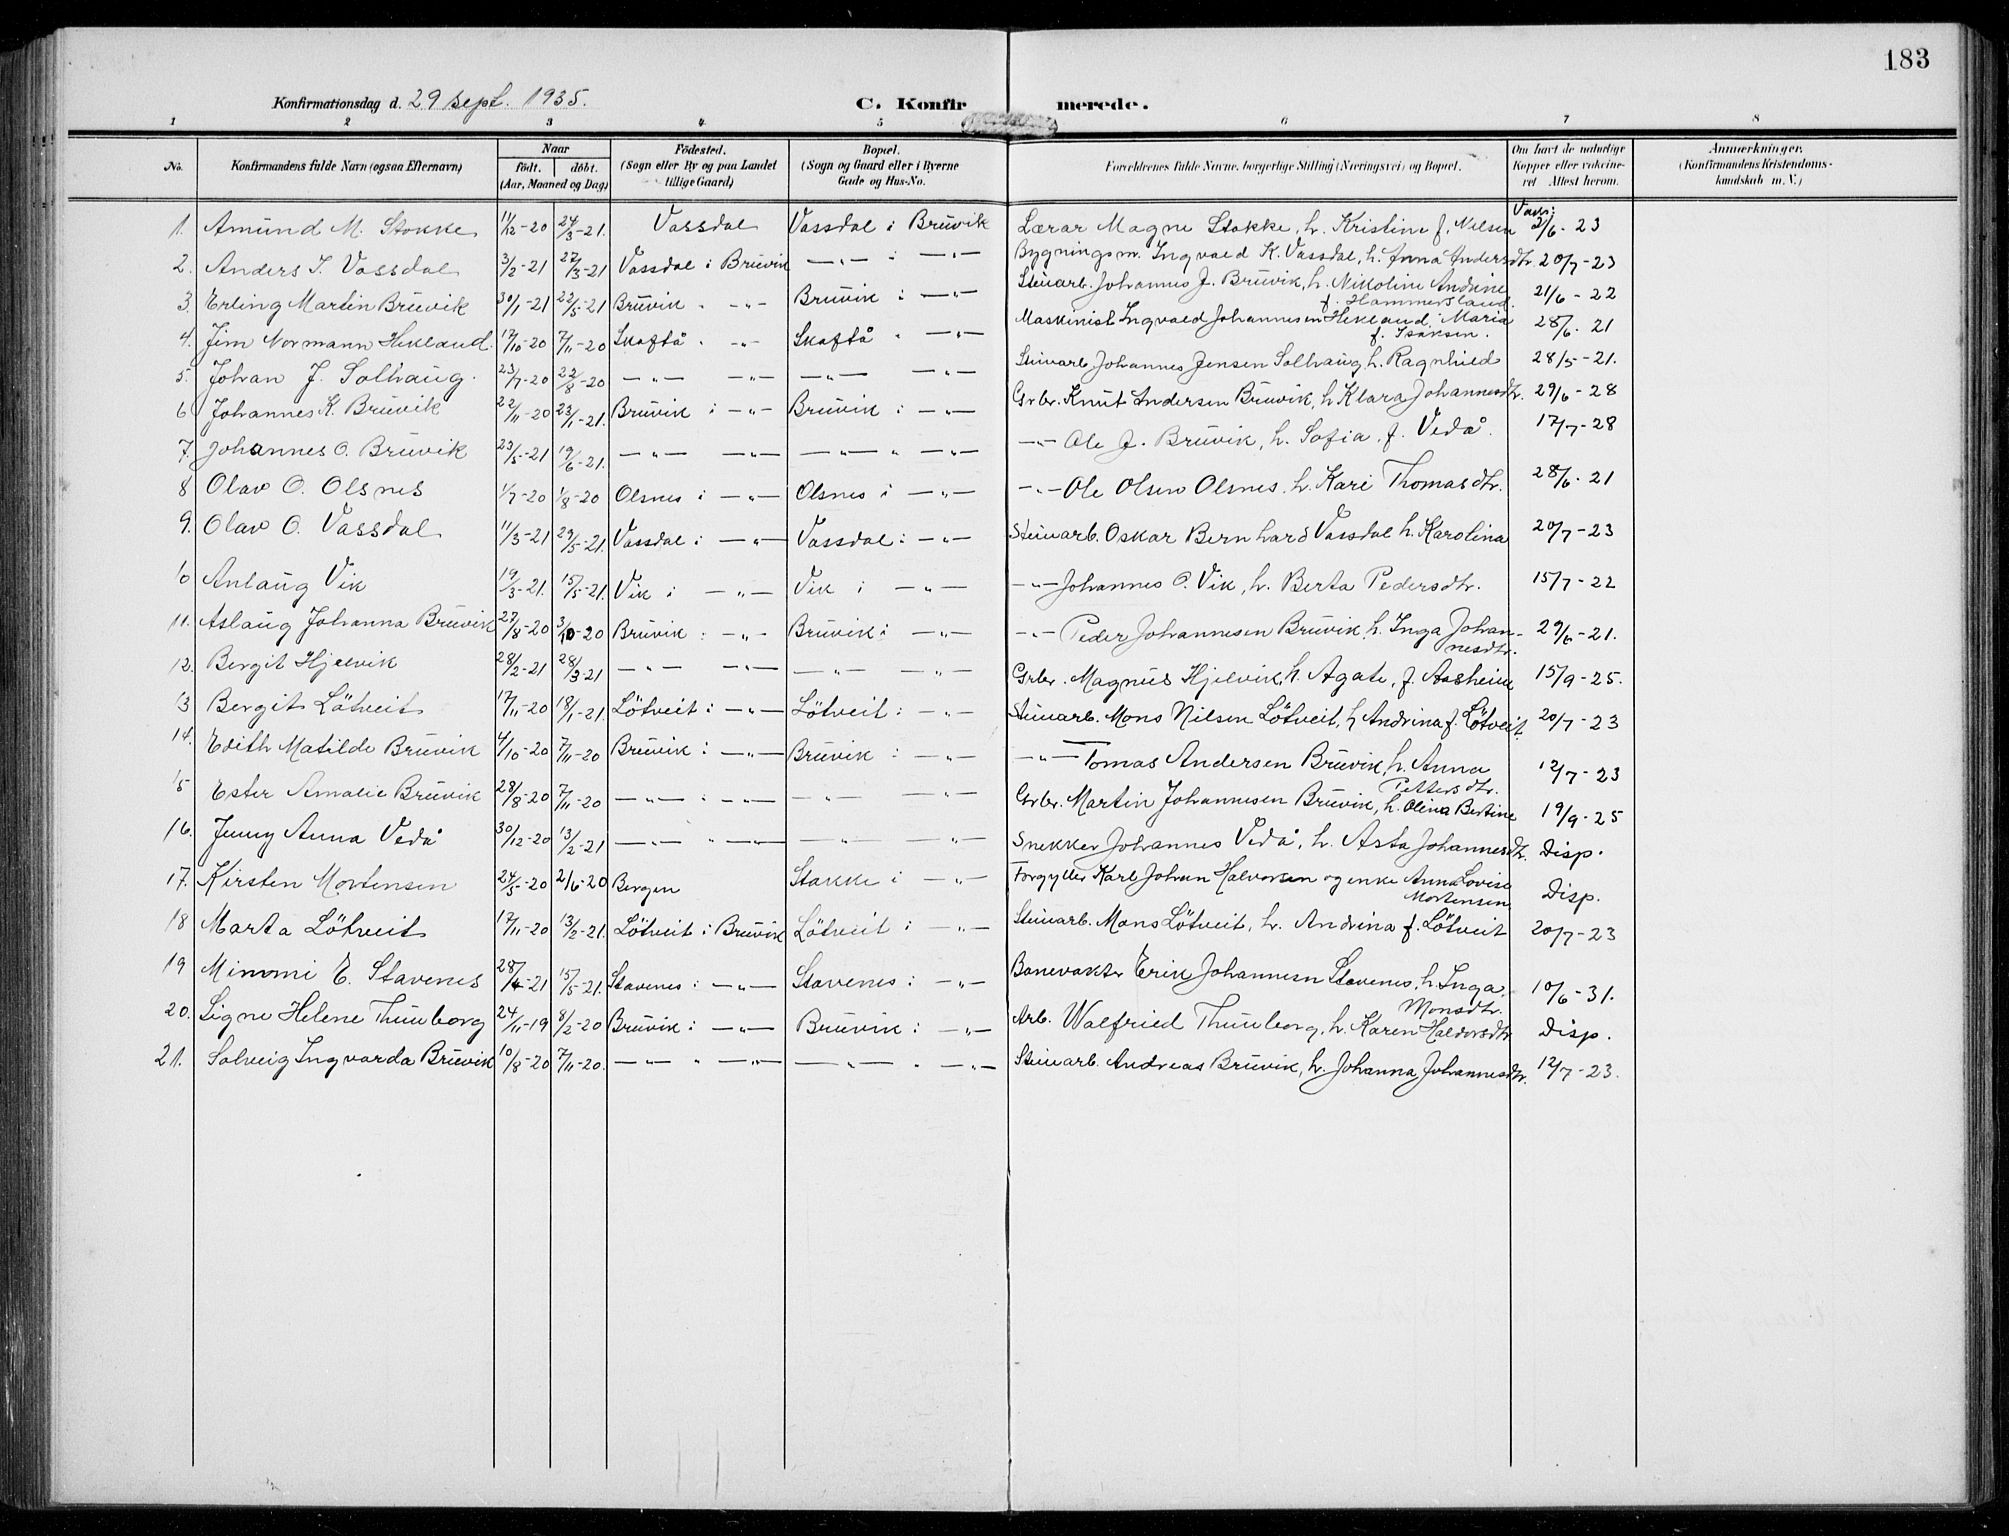 183
Konfirmationsdag d. 29 sept. 1935. C. Konfir merede.
1 2 3 4. 5 6 7 8
No. Konfirmandens fulde Navn (ogsaa Efternavn) Naar født. døbt. (Aar, Maaned og Dag) Födested. (Sogn eller By og paa Landet tillige Gaard) Bopæl. (Sogn og Gaard eller i Byerne Gade og Hus-No. Forældrenes fulde Navne, borgerlige Stilling (Næringsvei) og Bopæl. Om havt de naturlige Kopper eller vakcineret. Attest herom. Anmærkninger. (Konfirmandens Kristendomskundskab m. V.)
1. Amund M. Stokke 11/12-20 24/3-21. Vassdal Vassdal i Bruvik Lærar Magne Stokke, h. Kristine f. Nilsen Vacs: 2/6-23
2. Anders I. Vassdal 3/2-21 27/3-21 Vassdal i Bruvik —"— : —"— Bygningsm. Ingvald K. Vassdal, h. Anna Andersdtr. 20/7-23
3. Erling Martin Bruvik 30/1-21 22/5-21 Bruvik . -"- Bruvik : —"— Steinarb. Johannes J. Bruvik, h. Nikoline Andrine f. Hammersland. 21/6-22
4. Jim Normann Hekland. 17/10-20 7/11-20 Skaftå . -"- Skaftå " —"— Maskinist Ingvald Johannesen Hekland, Maria f. Isaksen. 28/6. 21
5. Johan J. Solhaug. 23/7-20 22/8-20 —"— —"— —"— —"— Steinarb Johannes Jensen Solhaug, h. Ragnhild 28/5-21.
6 Johannes K. Bruvik 22/11-20 23/1-21. Bruvik i —"— Bruvik : —"— Grbr. Knut Andersen Bruvik, h Klara Johannesdtr. 29/6-28
7. Johannes O. Bruvik 23/5-21 19/6-21. —"— —"— —"— " —"— —"— Ole J. Bruvik, h. Sofia f. Vedå. 17/7-28
8 Olav O. Olsnes 1/7-20 1/8-20 Olsnes i —"— Olsnes i —"— —"— Ole Olsen Olsnes, h. Kari Thomasdtr. 28/6. 21
9. Olav O. Vassdal 11/3-21 29/5-21. Vassdal i —"— Vassdal : —"— Steinarb. Oskar Bernhard Vassdal h. Karolina 20/7-23
10 Anlaug Vik 19/3-21. 15/5-21. Vik i —"— Vik i —"— —"— Johannes O. Vik, h. Berta Pedersdtr. 15/7-22
11. Aslaug Johanna Bruvik 27/8-20 3/10-20 Bruvik : —"— Bruvik : —"— —"— Peder Johannesen Bruvik, h. Inga Johannesdtr. 29/6-21.
12. Bergit Hjelvik 28/2-21 28/3-21 —"— —"— —"— —"— Grbr. Magnus Hjelvik, h. Agate, f. Aasheim 15/9-25.
13 Bergit Lötveit 17/11-20 18/1-21. Lötveit : —"— Lötveit : —"— Steinarb. Mons Nilsen Lötveit, h Andrina f. Lötveit. 20/7-23
14. Edith Matilde Bruvik 4/10-20 7/11-20 Bruvik : —"— Bruvik : —"— —"— Tomas Andersen Bruvik, h. Anna Pettersdtr. 12/7-23
15 Ester Amalie Bruvik 28/8-20 7/11-20 —"— : —"— —"— —"— Grbr. Martin Johannesen Bruvik, h. Olina Bertine 19/9-25
16. Jenny Anna Vedå 30/12-20 13/2-21 —"— " —"— —"— —"— Snekker Johannes Vedå, h. Asta Johannesdtr. Disp.
17. Kirsten Mortensen 24/5-20 2/6-20 Bergen Stokke i —"— Forgyller Karl Johan Halvorsen og enke Anna Lovise Mortensen Disp.
18 Marta Lötveit 17/11-20 13/2-21. Lötveit i Bruvik Lötveit i —"— Steinarb. Mons Lötveit, h. Andrina f. Lötveit 20/7-23
19 Mimmi E. Stavenes 28/4-21 15/5-21. Stavenes : —"— Stavenes : —"— Banevakter Erik Johannesn Stavenes, h Inga Monsdtr. 10/6-31.
20. Signe Helene Thunborg 24/11-19 8/2-20 Bruvik : —"— Bruvik : —"— Arb. Walfried Thunborg, h. Karen Haldorsdtr Disp.
21. Solveig Ingvarda Bruvik 10/8-20 7/11-20. —"— " —"— —"— . —"— Steinarb. Andreas Bruvik, h. Johanna Johannesdtr. 12/7-23.